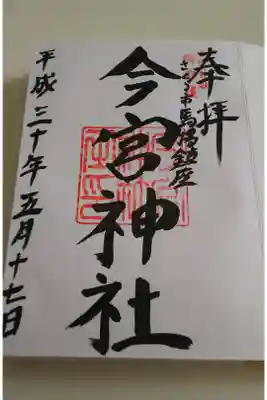 奉拝
さくら市馬場鎮座
今宮神社
平成三十年五月十七日